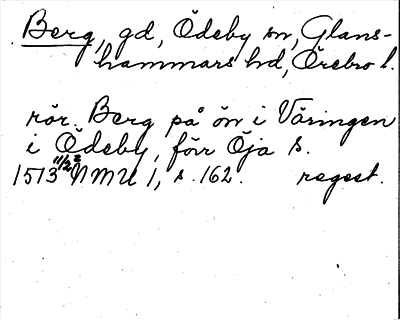 Berg, gd, Ödeby sn, Glans-
hammars hd, Örebro l.
rör. Berg på ön i Väringen
i Ödeby, förr Öja s.
1513 11/2 NMU 1, s. 162. regest.